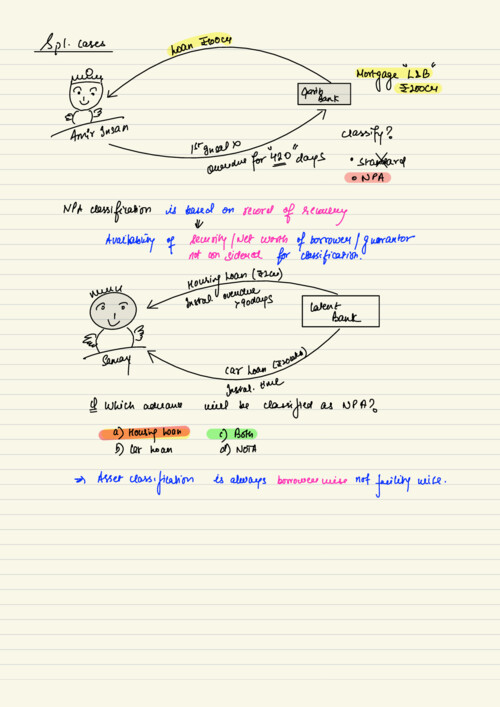 Spl. cases
Loan ₹500Cr
Mortgage "L&B"
₹200Cr
Bank
Amir Insan
classify?
1st Instal X
Overdue for "420" days
• Standard
• NPA
NPA classification is based on record of recovery
Availability of security/Net worth of borrower/guarantor
not considered for classification.
Housing Loan (₹2Cr)
Instal overdue
>90days
Latent
Bank
Samay
Car Loan
Instal.
Q Which advance will be classified as NPA?
a) Housing Loan c) Both
b) Car Loan d) NOTA
⇒ Asset classification is always borrower wise not facility wise.